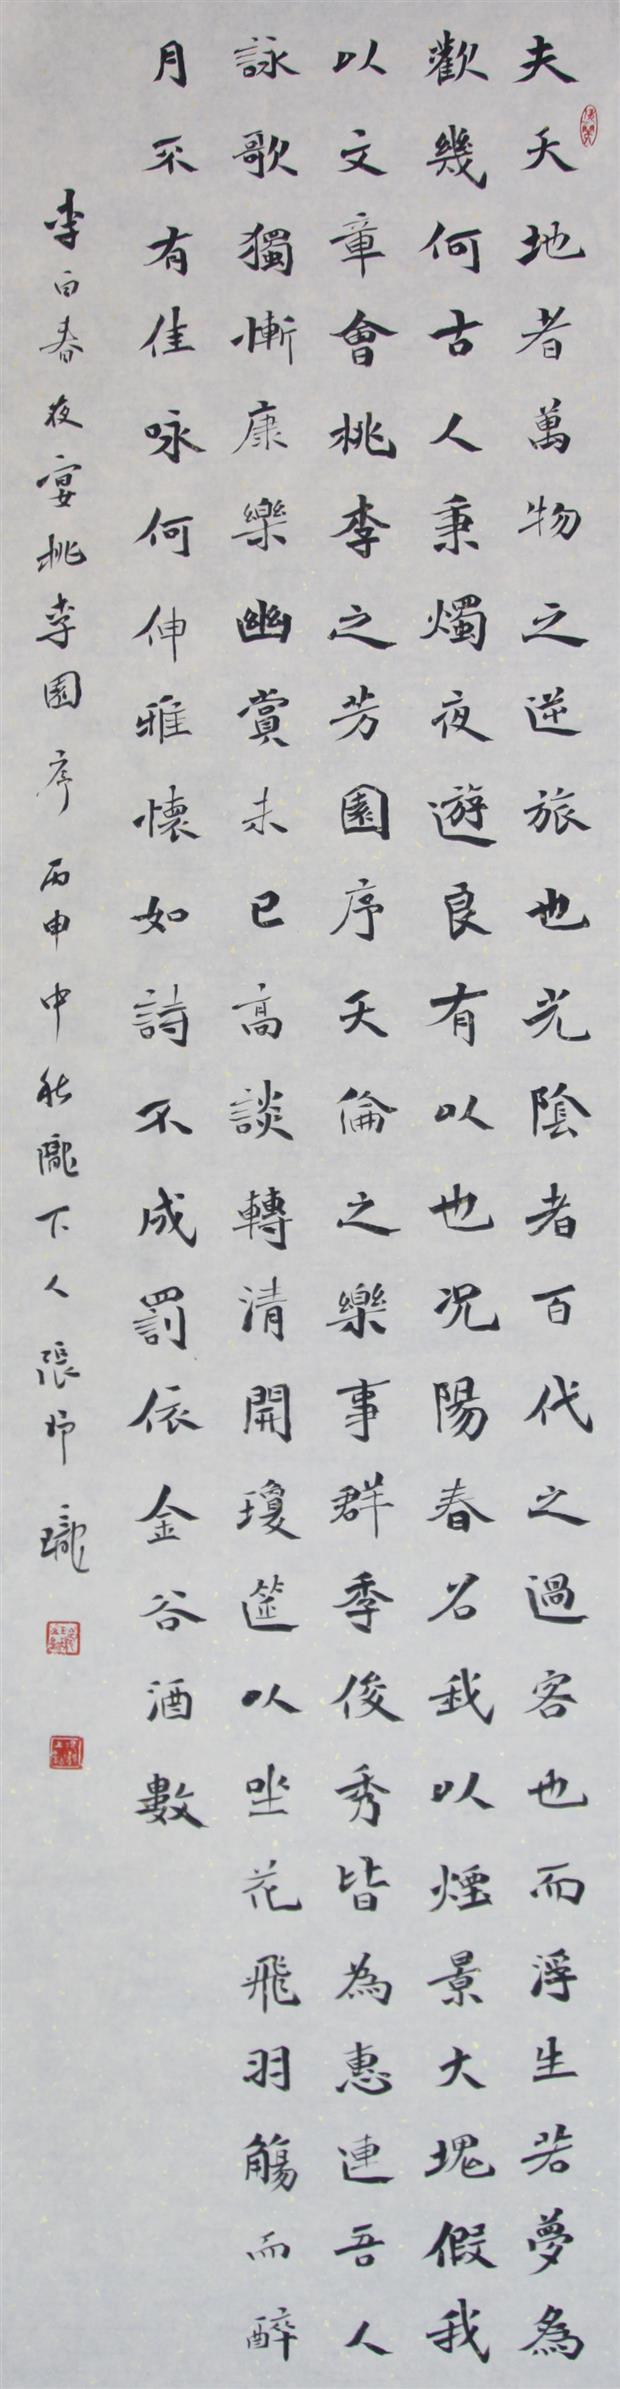 夫天地者萬物之逆旅也光陰者百代之過客也而浮生若夢為
歡幾何古人秉燭夜遊良有以也況陽春召我以煙景大塊假我
以文章會桃李之芳園序天倫之樂事群季俊秀皆為惠連吾人
詠歌獨慚康樂幽賞未已高談轉清開瓊筵以坐花飛羽觴而醉
月不有佳咏何伸雅懷如詩不成罰依金谷酒數
李白春夜宴桃李園序丙申中秋隴下人張